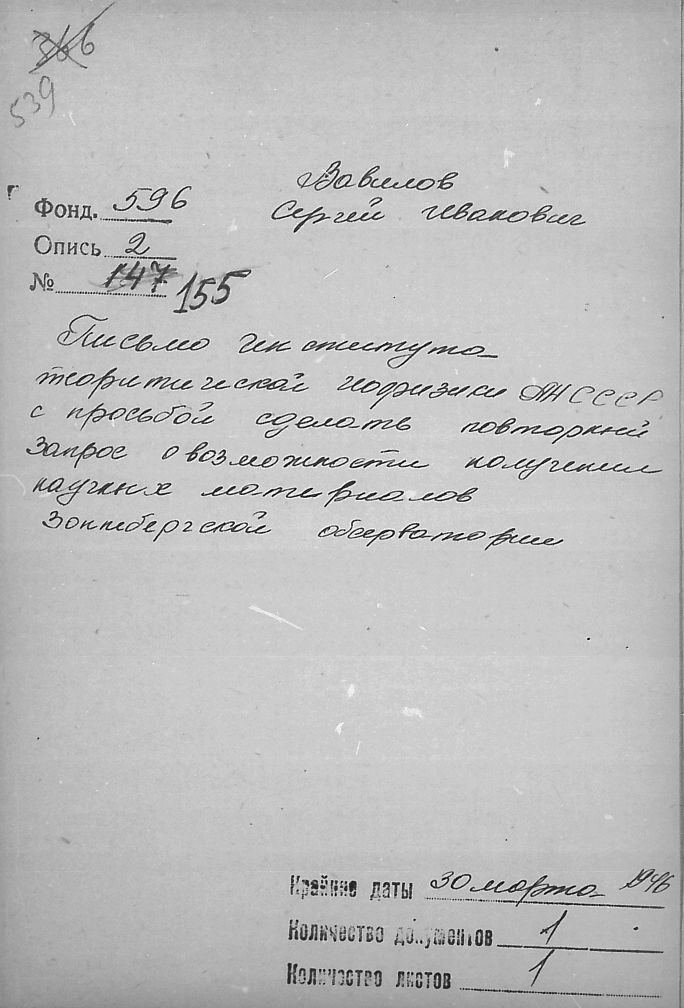 366
539
Вавилов
Сергей Иванович
Фонд. 596
Опись 2
№ 147 155
Письмо института
теоритической геофизики АН СССР
с просьбой сделать повторный
запрос о возможности получении
научных материалов
Зоннебергской обсерватории
Крайние даты 30 марта 1946
Количество документов 1
Количество листов 1